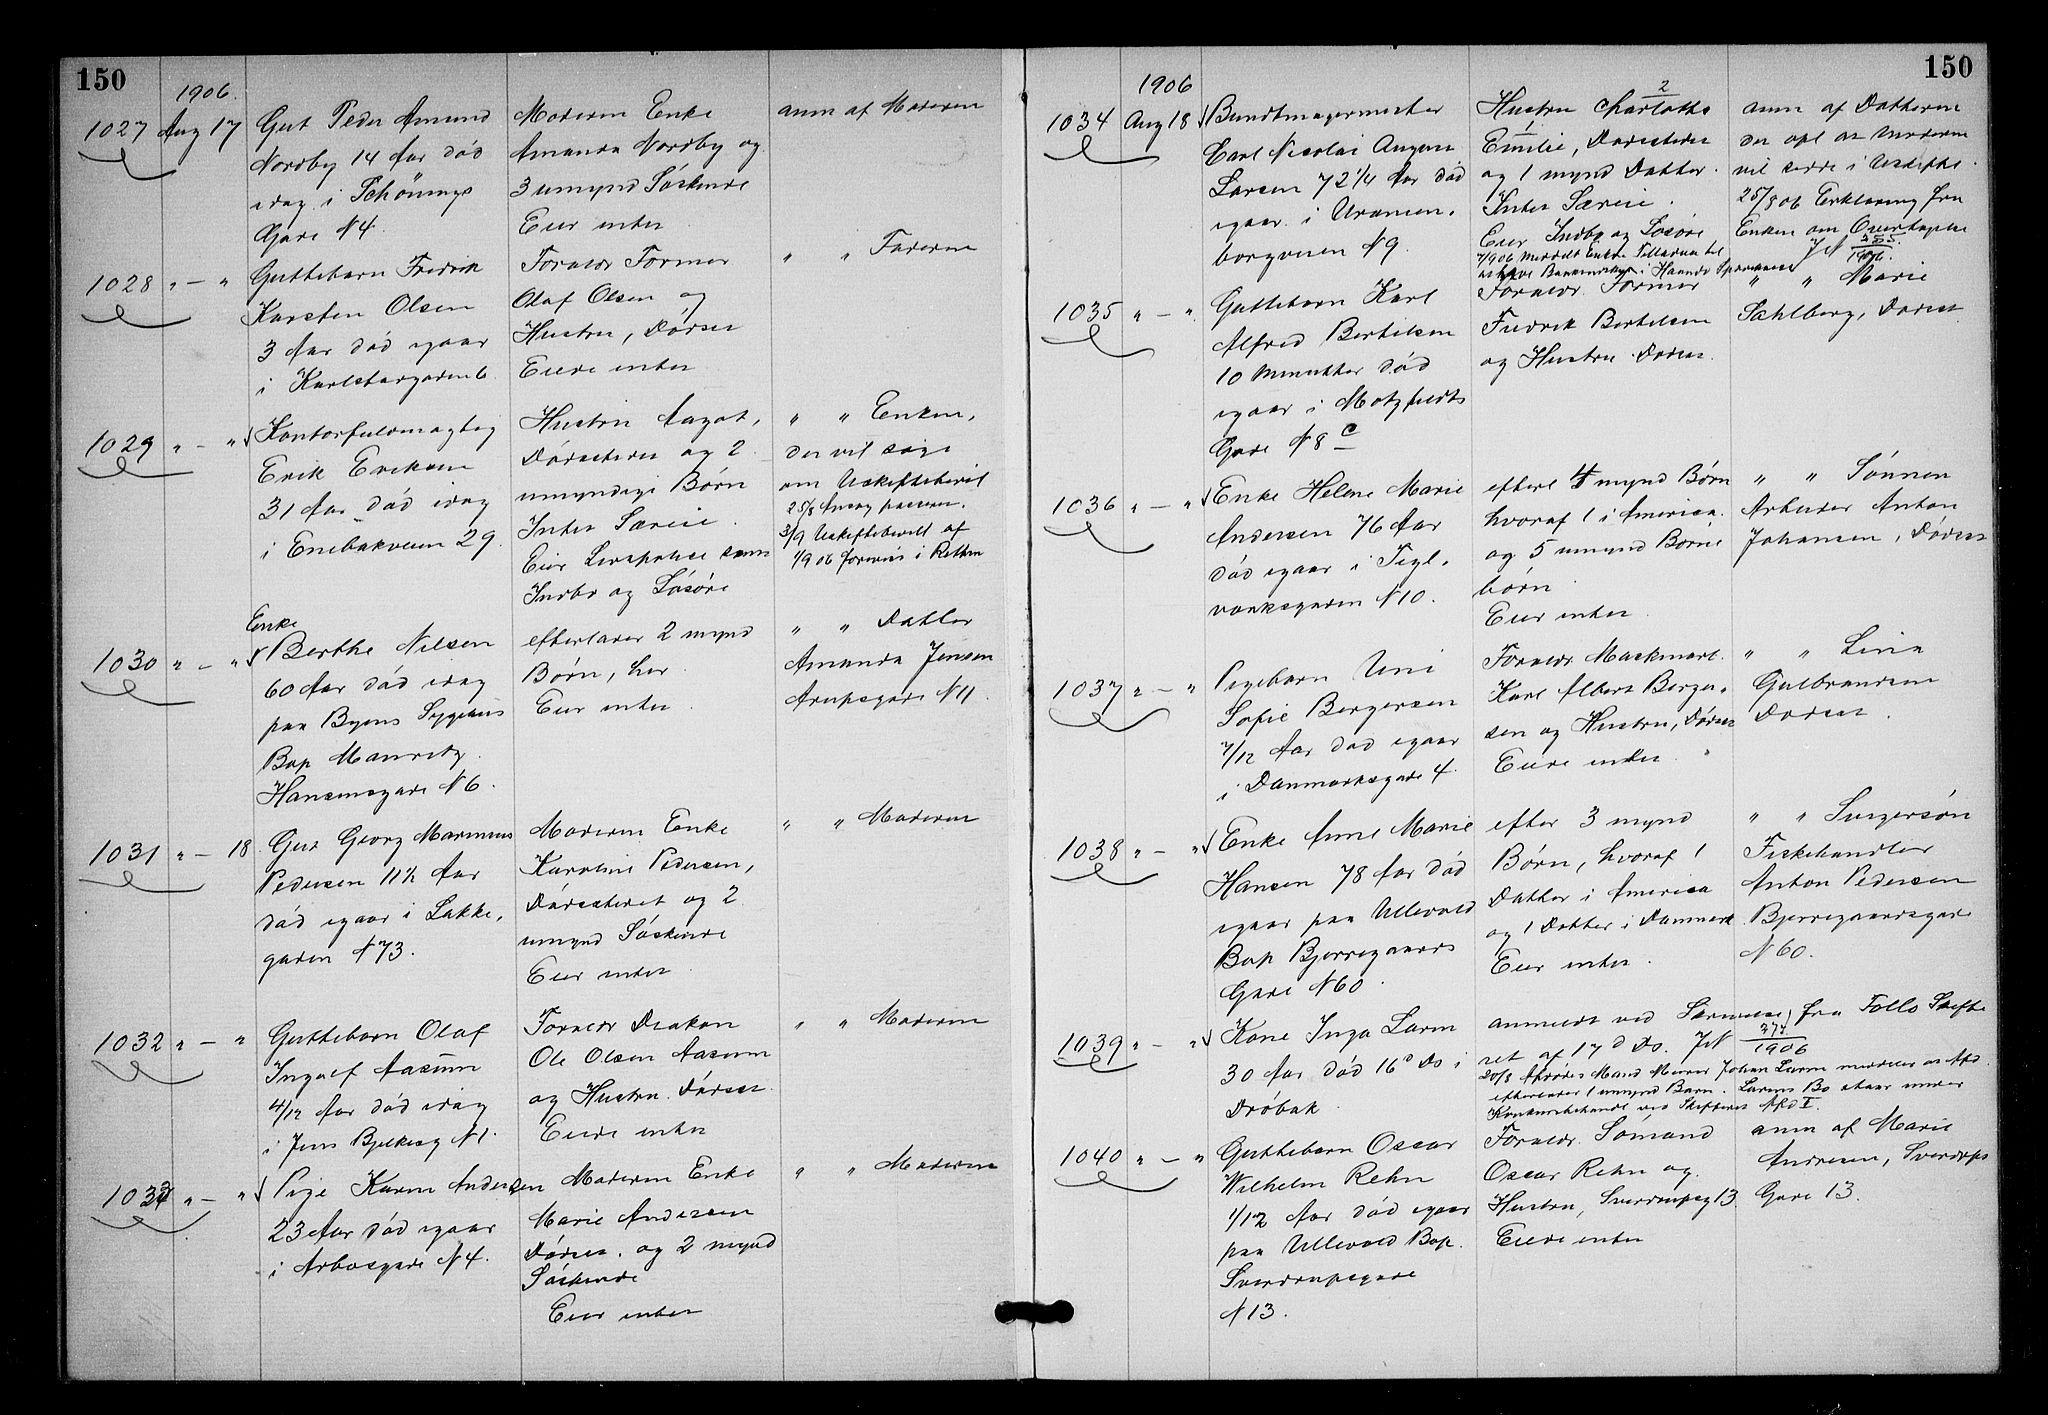 150
1906.
1027 Aug 17
Gut Peder Amund
Nordby 14 Aar død
idag i Schönings
Gade N4.
Moderen Enke
Amanda Nordby og
3 umynd Søskende
Eier intet
anm af Moderen
1028 " — "
Guttebarn Fredrik
Karsten Olsen
3 Aar død igaar
i Karlstadgaden 6
Forældr Former
Olaf Olsen og
Hustru, Dødsst
Eiede intet
" " Faderen
1029 " — "
Kontorfuldmægtig
Erik Eriksen
31 Aar død idag
i Enebakveien 29.
Hustru Aagot,
Dødsstedet og 2
umyndige Børn
Intet Særeie.
Eier Livspolice samt
Indbo og Løsøre
" " Enken,
der vil søge
om Uskiftebevil
25/8 Ansøg passeret.
3/9 Uskiftebevill af
1/9 06 forevist i Retten
1030 " — "
Enke
Berthe Nilsen
60 Aar død idag
paa Byens Sygehus
Bop Mauritz
Hansensgade N6.
efterlader 2 mynd
Børn, her
Eier intet
" " Datter
Amanda Jensen
Arupsgade N11.
1031 " — 18
Gut Georg Marinius
Pedersen 11½ Aar
død igaar i Lakke-
gaden N73.
Moderen Enke
Karoline Pedersen,
Dødsstedet og 2
umynd Søskende
Eier intet
" " Moderen
1032 " — "
Guttebarn Olaf
Ingolf Aasum
4/12 Aar død idag
i Jens Bjelkesg N1.
Forældr Diakon
Ole Olsen Aasum
og Hustru. Dødsst
Eiede intet
" " Moderen
1033 " — "
Pige Karen Andersen
23 Aar død igaar
i Arbosgade N4.
Moderen Enke
Marie Andersen
Dødsst. og 2 mynd
Søskende
Eier intet
" " Moderen
150
1906
1034 Aug 18
Bundtmagermester
Carl Nicolai August
Larsen 72¼ Aar død
igaar i Uranien-
borgveien N9.
2
Hustru Charlotte
1
Emilie, Dødsstedet
og 1 mynd Datter.
Intet Særeie.
Eier Indbo og Løsøre
anm af Datteren
der opl at Moderen
vil sidde i Uskifte.
25/8 06 Erklæring fra
Enken om Overtagelse
JN 355
1906.
1035 " — "
Guttebarn Karl
Alfred Bertilsen
10 Minutter død
igaar i Motzfeldts
Gade N8 c
Forældr. Former
Fredrik Bertilsen
og Hustru Dødsst.
" " Marie
Sahlberg, Dødsst
1036 " — "
Enke Helene Marie
Andersen 76 Aar
død igaar i Tegl-
værksgaden N10.
efterl 4 mynd Børn
hvoraf 1 i America.
og 5 umynd Børne
børn
Eier intet
" " Sønnen
Arbeider Anton
Johansen, Dødsst
1037 " — "
Pigebarn Uni
Sofie Bergersen
7/12 Aar død igaar
i Danmarksgade 4.
Forældr Maskinarb.
Karl Albert Berger-
sen og Hustru, Dødsst
Eiede intet.
" " Lina
Gulbrandsen
Dødsst.
1038 " — "
Enke Anne Marie
Hansen 78 Aar død
igaar paa Ullevold
Bop Bjerregaards
Gade N60.
efter 3 mynd
Børn, hvoraf 1
Datter i America
og 1 Datter i Danmark
Eier intet.
" " Svigersøn
Fiskehandler
Anton Pedersen
Bjerregaardsgade
N60.
1039 " — "
Kone Inga Larm
30 Aar død 16d Ds i
Drøbak
anmeldt ved Skrivelse fra Follo Skifte
ret af 17d Ds. JN 374
1906
20/8 Afdødes Mand Murer Johan Larm meddeler at Afd
efterlader 1 umynd Barn. Larms Bo staar under
Konkursbehandl ved Skifteret Afd I.
1040 " — "
Guttebarn Oscar
Wilhelm Rehn
1/12 Aar død igaar
paa Ullevold Bop.
Sverdrupsgade
N13.
Forældr. Sømand
Oscar Rehn og
Hustru, Sverdrupsg 13
Eiede intet
anm af Marie
Andresen, Sverdrups
Gade 13.